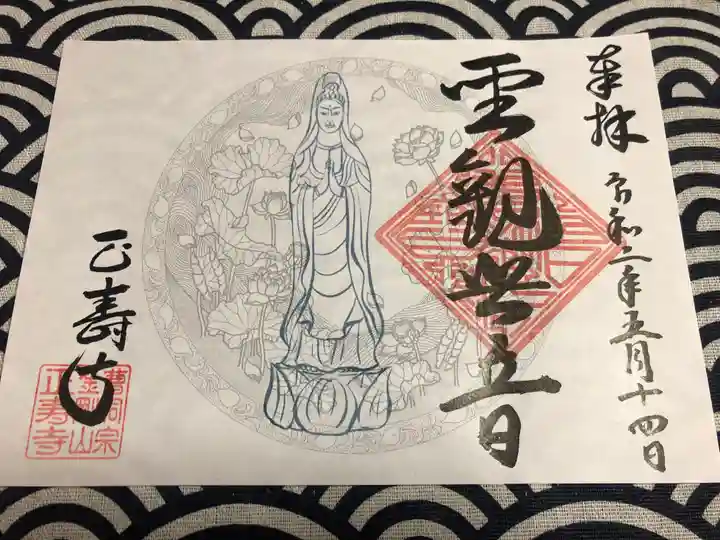 奉拝
令和二年五月十四日
聖観世音
正壽寺
曹洞宗
金剛山
正寿寺